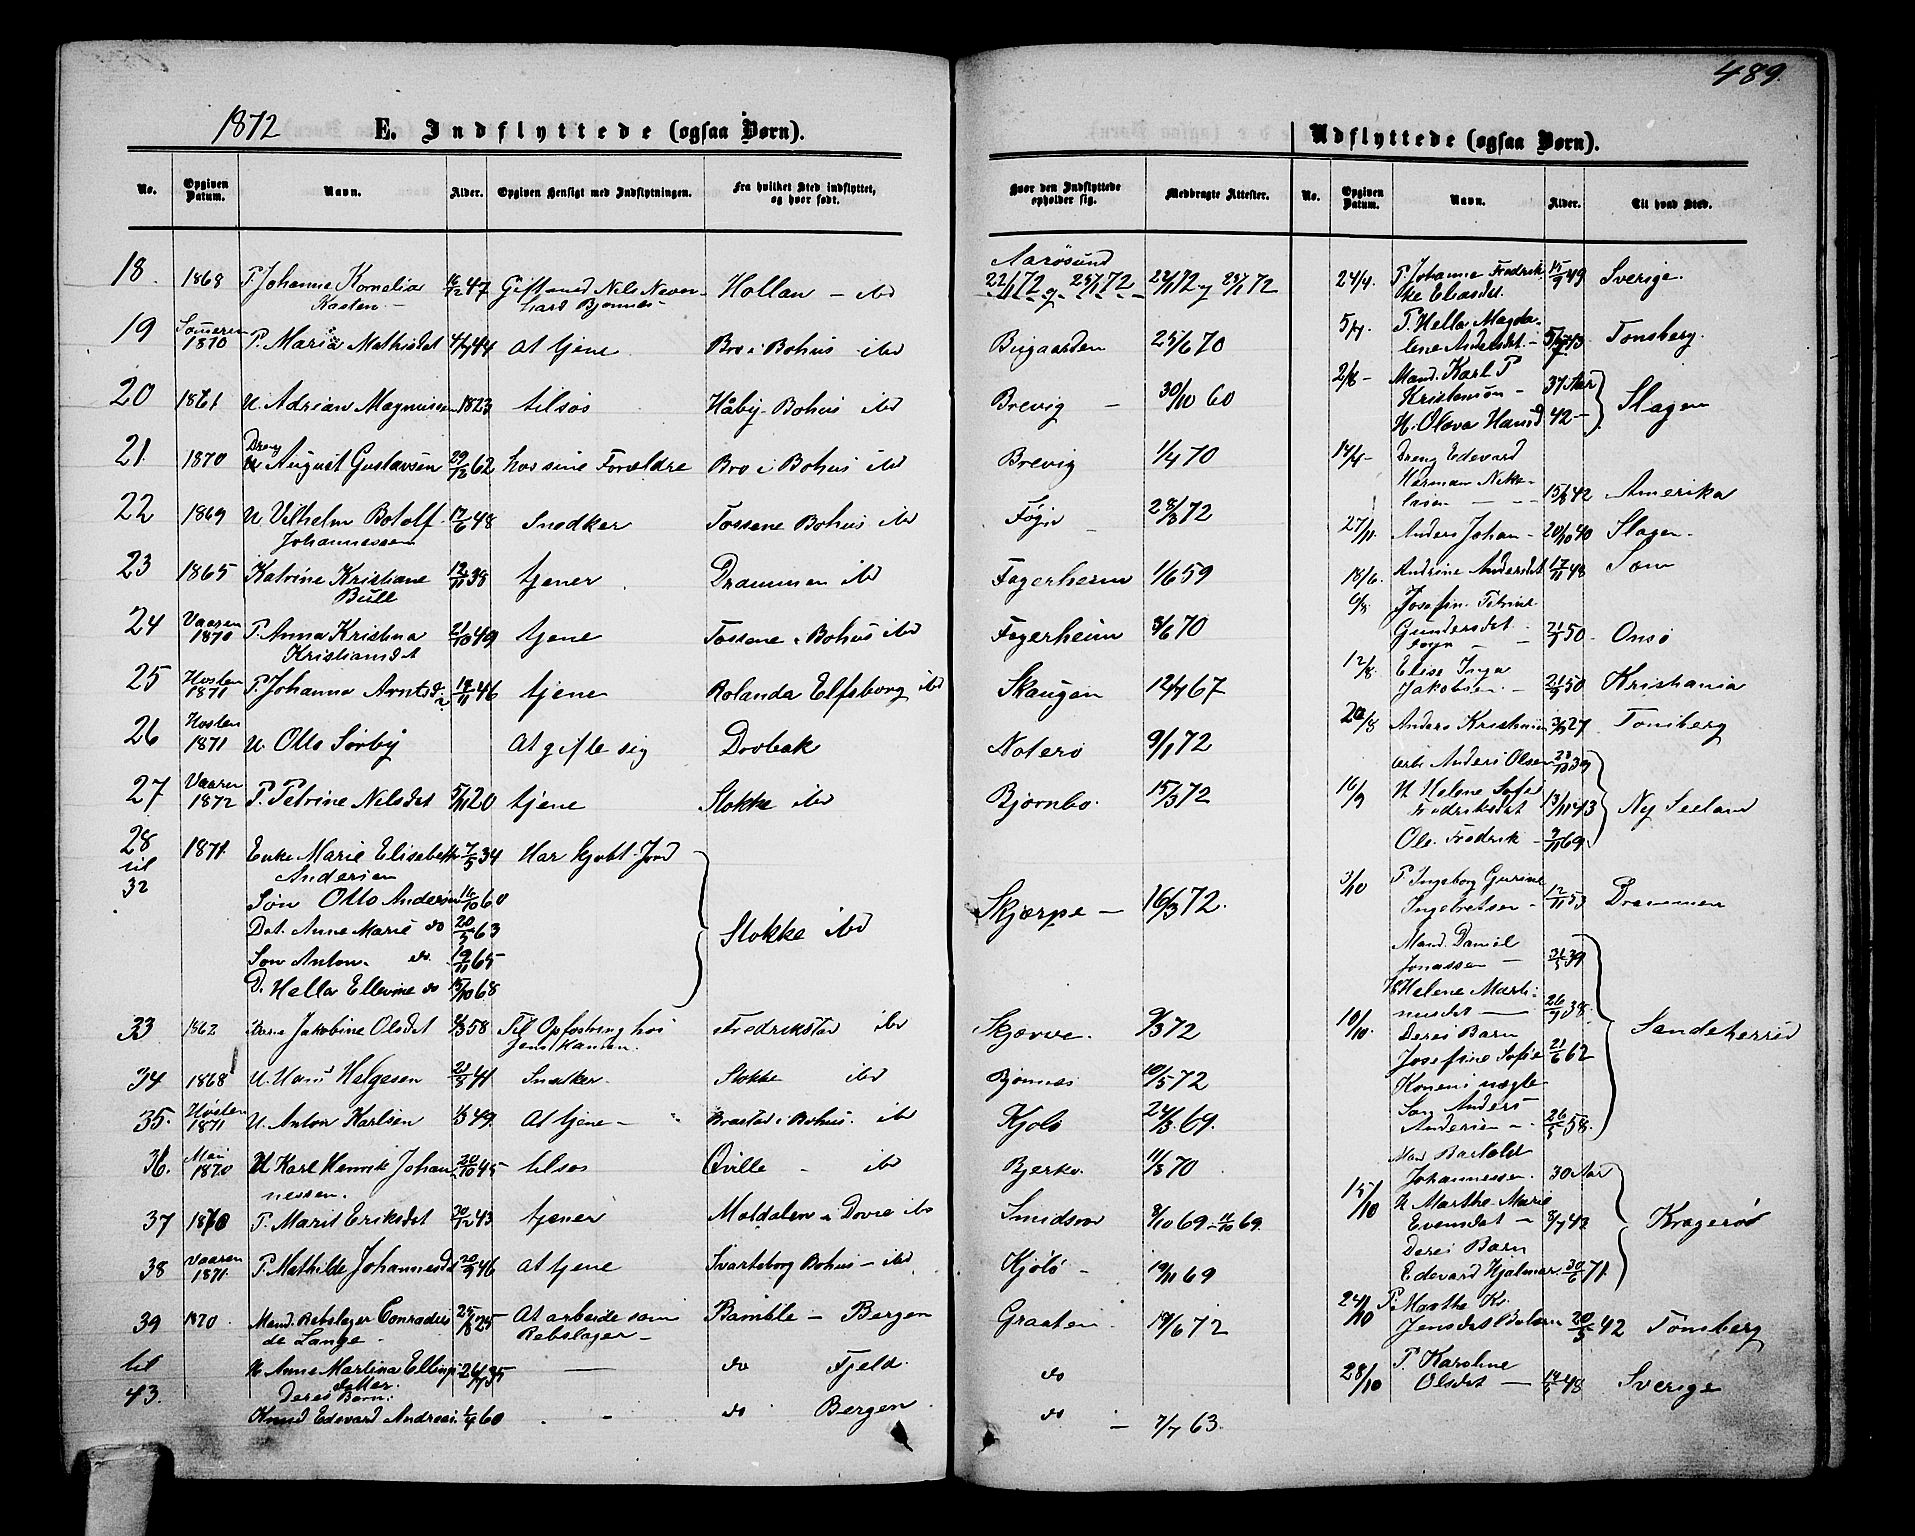 489.
1872 E. Indflyttede (ogsaa Børn).
No. Opgiven Datum. Navn. Alder. Opgiven Hensigt med Indflytningen. Fra hvilket Sted indflyttet, og hvor født.
18. 1868 P. Johanne Kornelia Kasten - 47 Gift med Nils Never-
hard Bjønnes - Hollan - ibd
19 Someren 1870 P. Maria Mathisdet 44 At tjene Bro i Bohus ibd
20 1861 U. Adrian Magnusen 1823 tilsøs Håby Bohus ibd
21. 1870 Dreng August Gustavsen 62 hos sine Forældre Bro i Bohus ibd
22 1869 U Vilhelm Botolf 17/6 48 Snedker Tossene Bohus ibd
Johannessen
23 1865 Katrine Kristiane 38 tjener Drammen ibd
Bull
24 Vaaren 1870 P. Anna Kristina 21/10 49 tjene Tossene i Bohus ibd
Kristiansdt
25 Høsten 1871 P. Johanna Arntsd. 46 tjene Rolanda Elfsborg ibd
26 Høsten 1871 U Otto Sørby At gifte sig Drøbak
27 Vaaren 1872 P. Petrine Nilsdet 20 tjene Stokke ibd
28 1871. Enke Marie Elisabeth 7/5 34 Har kjøbt Jord
til Andersen
32 Søn Otto Andersen 16/10 60
Dat. Anne Marie do 20/5 63 Stokke ibd
Søn Anton do. 19/11 65
D. Hella Ellevine do 15/10 68
33 1862 Jakobine Olsdet 58 Til Opfostring hos Fredrikstad ibd
Jens Hansen.
34 1868 U. Hans Helgesen 41 Snedker. Stokke ibd
35. Høsten 1871 U. Anton Karlsen 49. At tjene - Brastad i Bohus. ibd
36. Mai 1870 U Karl Henrik Johan 20/10 45 tilsøs Qville - ibd
nessen.
37 1870 P. Marit Eriksdet 20/12 43 tjener Moldalen i Dovre ibd
38 Vaaren 1871. P. Mathilde Johannesdt 20/9 46 At tjene Svarteborg Bohus - ibd
39 1870. Mand. Rebslager Conrad 25/8 25 At arbeide som Bamble - Bergen
de Lange - Rebslager -
til H. Anne Martina Ellings 26/7 35 - do Fjeld.
datter.
43. Deres Børn:
Knud Edevard Andreas. 1/4 60 - do Bergen.
Hvor den Indflyttede opholder sig. Medbragte Attester.
Aarøsund
22/1 72 og 25/1 72 22/1 72 og 25/1 72
Bugaarden 25/6 70
Brevig - 30/10 60
Brevig 1/4 70
Føjn - 28/3 72
Fagerheim 1/6 59
Fagerheim 8/6 70
Skaugen 12/4 67
Nøterø 9/1 72
Bjørnbo. 15/3 72
Skjærpe - 16/3 72.
Skjærve. 9/3 72
Bjønnes 10/5 72
Kjøló 24/3 69.
Bjerke. 11/3 70
Smidsrød 8/10 69 - 11/10 69.
Kjøló - 19/11 69
Graaten. 19/6 72
do
do - 7/7 63.
Udflyttede (ogsaa Børn).
No. Opgiven Datum. Navn. Alder. Til hvad Sted.
24/4. P. Johanne Fredrik 15/9 49 Sverige.
ke Eliasdet.
5/4. P. Hella Magda-
lene Andersdt - 43 Tønsberg.
2/8 - Mand. Karl P
Kristensøn - 37 Aar
H. Olava Hansd 42 - Slagen
14/4 - Dreng Edevard
Herman Nikko-
laisen - 42 Amerika
27/11 Anders Johan - 20/10 40 Slagen.
18/6. Andrine Andersdt 17/11 48 Søm
6/8. Josefin. Petrine
Gundersdet 21/9 50. Onsø
Føjn -
12/8. Elise Inga
Jakobsen. - 21/9 50 Kristiania
20/8 Anders Kristensen 27 Tønsberg
Arb. Anders Olsen 39
16/9 H Helene Sofie
Fredriksdet 13/11 43 Ny Seeland
Ole Fredrik - 9/11 69.
3/10 P Ingeborg Gurine
Ingebretsen - 12/11 53 Drammen
Mand. Daniel
Jonassen - 39
H. Helene Marti-
nusdet - 26/9 38.
10/10. Deres Barn
Josefine Sofie 21/6 62 Sandeherred
Konens uægte
Søn Anders
Andersen - 26/5 58.
Mand Bartold
Johannessen. 30 Aar
15/10 H Marthe Marie
Evensdat - 8/7 42 Kragerø
Deres Barn
Edevard Hjalmar. 30/6 71.
24/10 P. Marthe Kr.
Jensdet Bolærn 20/5 42 Tønsberg
28/10 P. Karoline
Olsdet - 48 Sverige